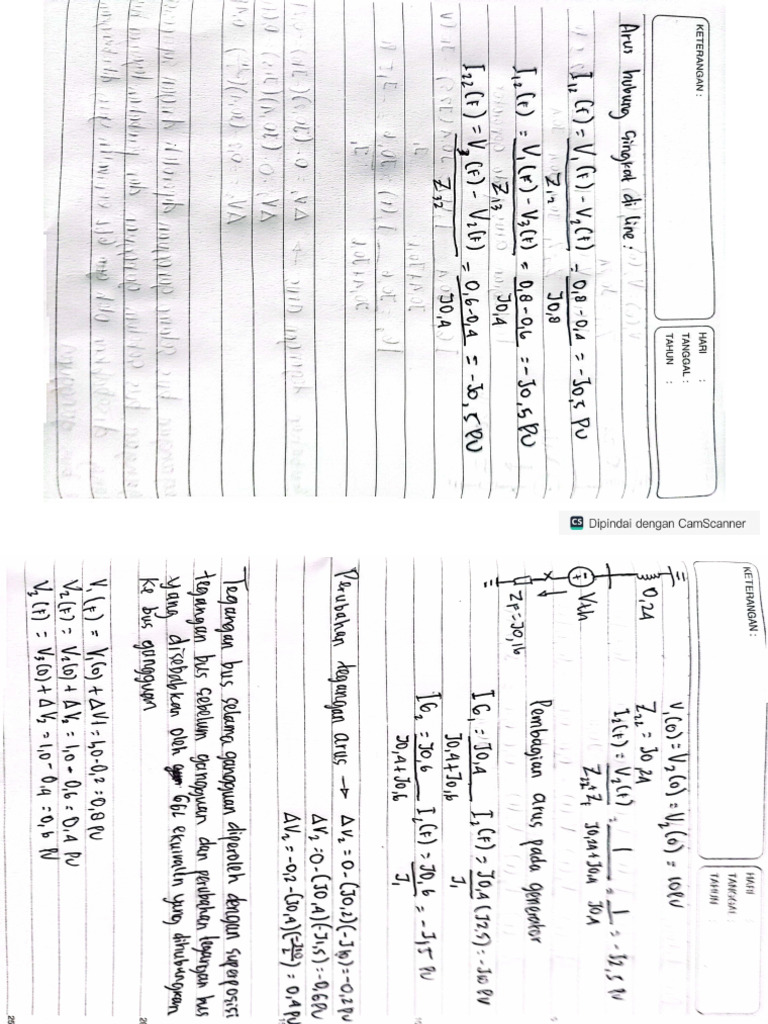 KETERANGAN :
HARI :
TANGGAL :
TAHUN :
Arus hubung singkat di line :
I12 (F) = V1 (F) - V2 (F) / Z12 = 0,8 - 0,4 / J0,8 = -J0,5 PU
I12 (F) = V1 (F) - V3 (F) / Z13 = 0,8 - 0,6 / J0,4 = -J0,5 PU
I22 (F) = V3 (F) - V2 (F) / Z32 = 0,6 - 0,4 / J0,4 = -J0,5 PU
CS Dipindai dengan CamScanner
KETERANGAN :
HARI :
TANGGAL :
TAHUN :
V1 (0) = V2 (0) = V2 (0) = 1,0 PU
J0,24
Z22 = J0,24
I2 (F) = V2 (F) / Z22 + Zf = 1 / J0,24 + J0,16 = 1 / J0,4 = -J2,5 PU
Vth
ZF = J0,16
Pembagian arus pada generator
IG1 = J0,4 / J0,4 + J0,6 I2 (F) = J0,4 (J2,5) / J1 = -J10 PU
IG2 = J0,6 / J0,4 + J0,6 I2 (F) = J0,6 / J1 = -J1,5 PU
Perubahan tegangan arus → ΔV2 = 0 - (J0,2) (-J10) = -0,2 PU
ΔV2 = 0 - (J0,4) (-J1,5) = -0,6 PU
ΔV2 = -0,2 - (J0,4) (-J10/2) = 0,4 PU
Tegangan bus selama gangguan diperoleh dengan superposisi
tegangan bus sebelum gangguan dan perubahan tegangan bus
yang disebabkan oleh GGL ekuivalen yang dihubungkan
ke bus gangguan
V1 (F) = V1 (0) + ΔV1 = 1,0 - 0,2 = 0,8 PU
V2 (F) = V2 (0) + ΔV2 = 1,0 - 0,6 = 0,4 PU
V3 (F) = V3 (0) + ΔV3 = 1,0 - 0,4 = 0,6 PU
25